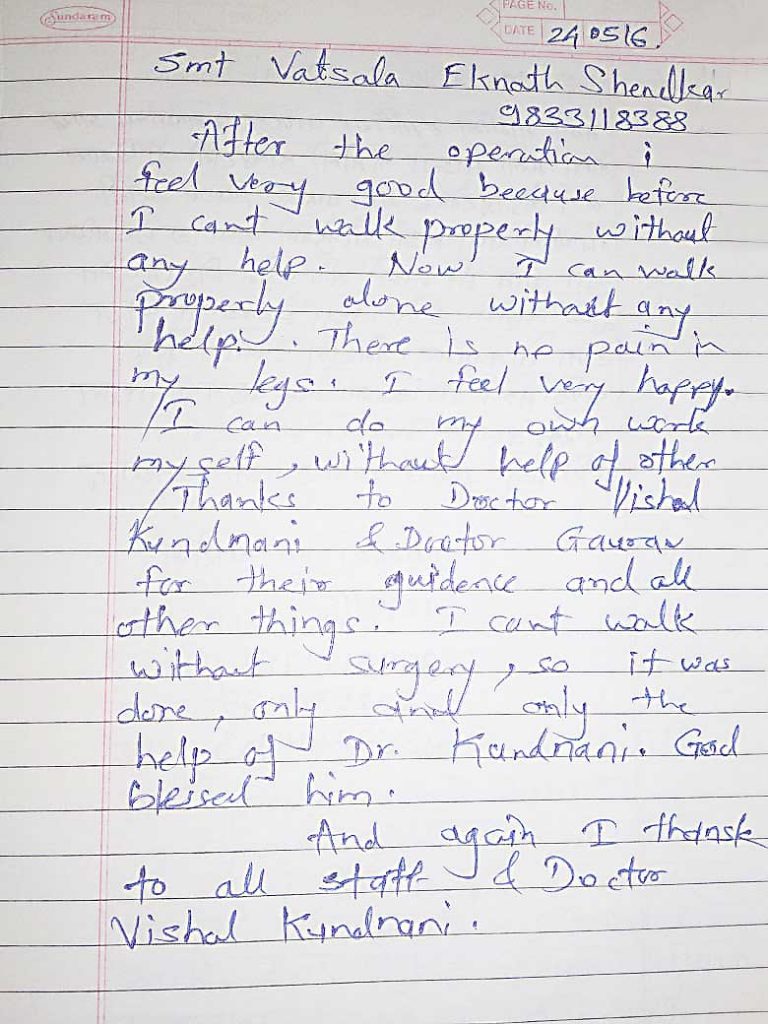 Sundaram
PAGE No.
DATE 24 05 16.
Smt Vatsala Eknath Shendkar
9833118388
After the operation i
feel very good because before
I cant walk properly without
any help. Now I can walk
properly alone without any
help. There is no pain in
my legs. I feel very happy.
I can do my own work
myself, without help of other
Thanks to Doctor Vishal
Kundnani & Doctor Gaurav
for their guidence and all
other things. I cant walk
without surgery, so it was
done, only and only the
help of Dr. Kundnani. God
blessed him.
And again I thansk
to all staff & Doctor
Vishal Kundnani.